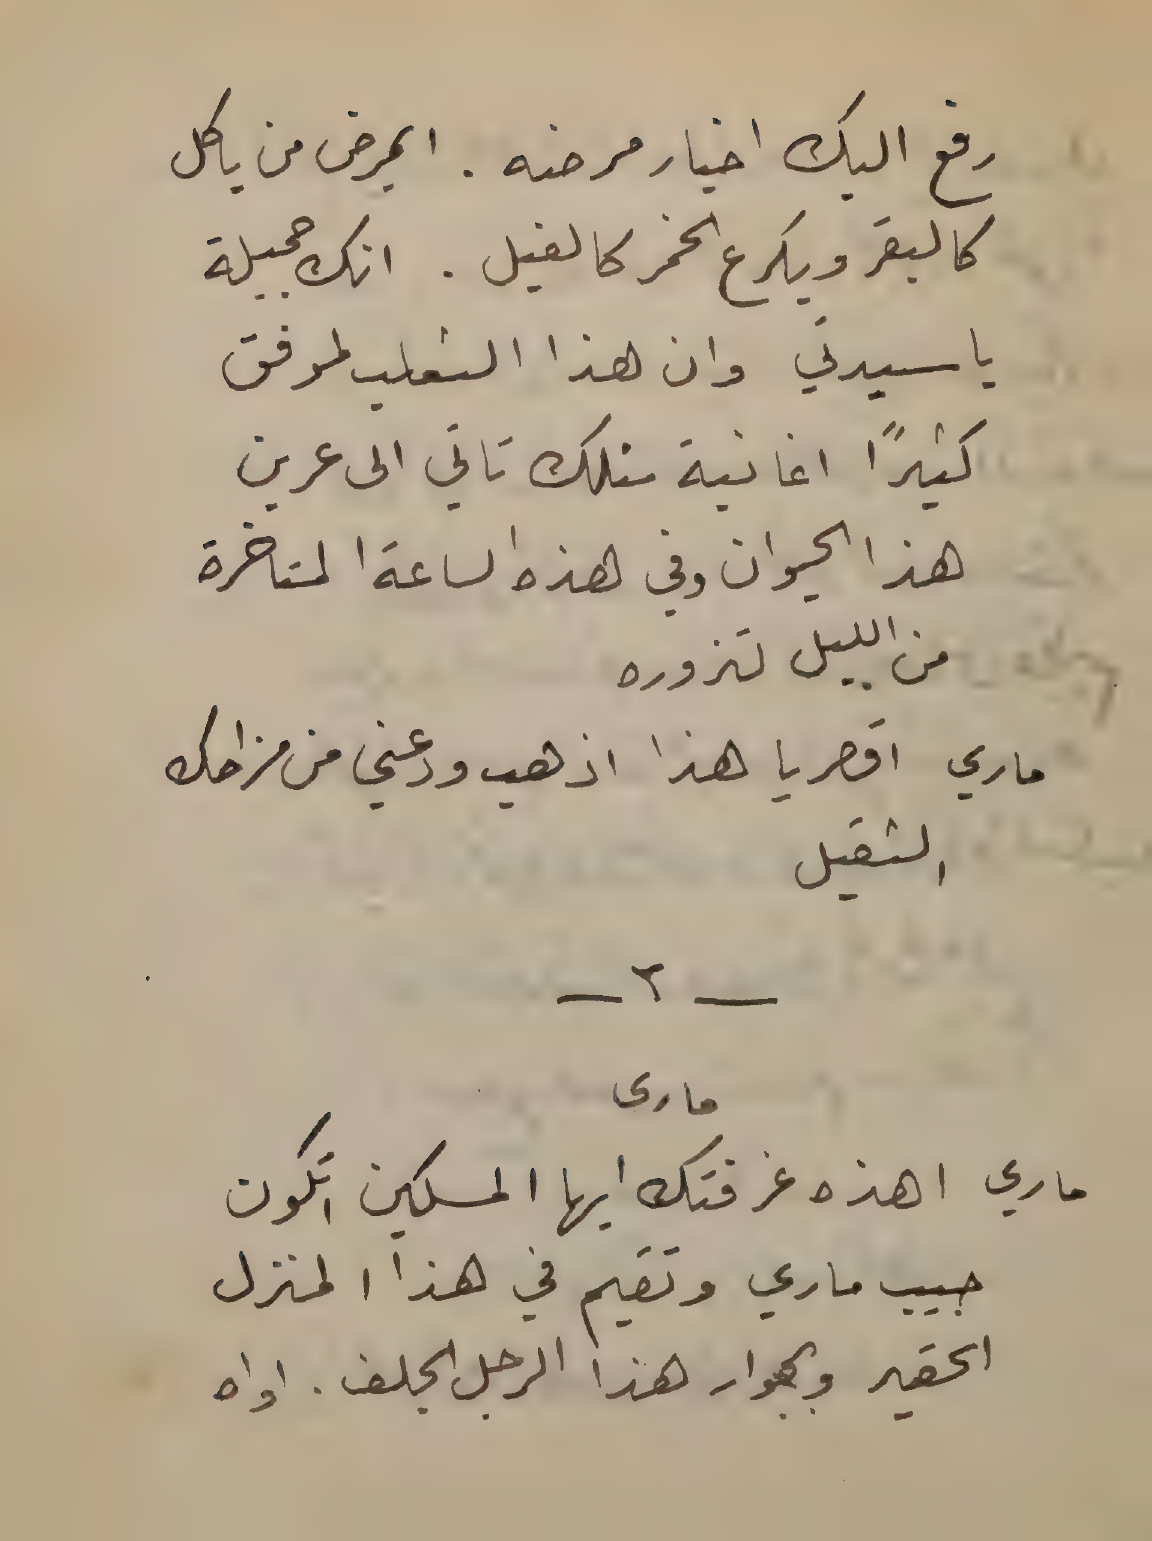 رفع اليك اخبار مرضه . ايمرض من ياكل
كالبقر ويكرع الخمر كالفيل . انك جميلة
يا سيدتي وان هذا الثعلب لموفق
كثيرًا اغانية مثلك تاتي الى عرين
هذا الحيوان وفي هذه الساعة المتاخرة
من الليل لتزوره
ماري اقصر يا هذا اذهب ودعني من مزاحك
الثقيل
— ٢ —
مارى
ماري اهذه غرفتك ايها المسكين اتكون
حبيب ماري وتقيم في هذا المنزل
الحقير وبجوار هذا الرجل الجلف . اواه